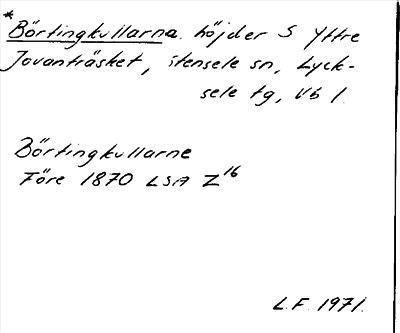 *
Börtingkullarna. höjder S Yttre
Jovanträsket, Stensele sn, Lyck-
sele tg, Vb l.
Börtingkullarne
Före 1870 LSA Z16
L.F. 1971.